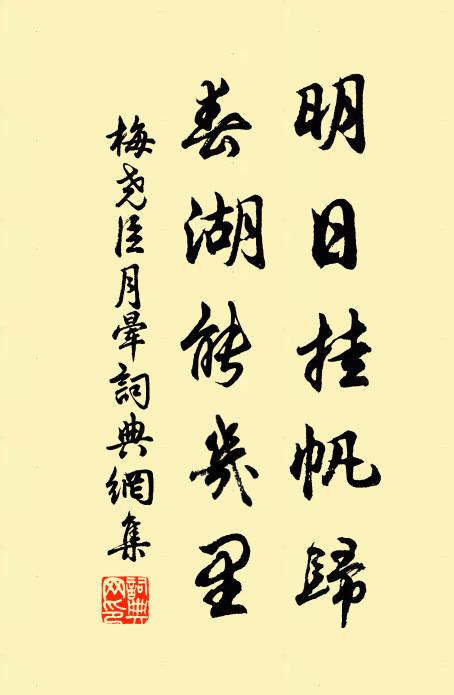 明日挂帆歸
春湖能幾里
梅堯臣月暈詞典網集
詞典網印